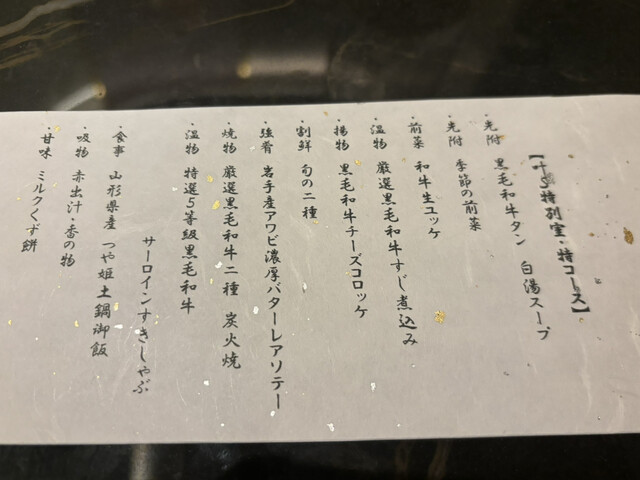 【叶う特別室・特コース】
・先附 黒毛和牛タン 白湯スープ
・先附 季節の前菜
・前菜 和牛生ユッケ
・温物 厳選黒毛和牛すじ煮込み
・揚物 黒毛和牛チーズコロッケ
・割鮮 旬の二種
・強肴 岩手産アワビ濃厚バターレアソテー
・焼物 厳選黒毛和牛二種 炭火焼
・温物 特選5等級黒毛和牛
サーロインすきしゃぶ
・食事 山形県産 つや姫土鍋御飯
・吸物 赤出汁・香の物
・甘味 ミルクくず餅